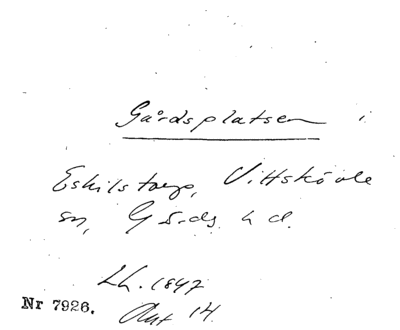 Gårdsplatsen i
Eskilstorp, Vittskövle
sn, Gärds hd.
Lh. 1847
Nr 7926. Akt 14.